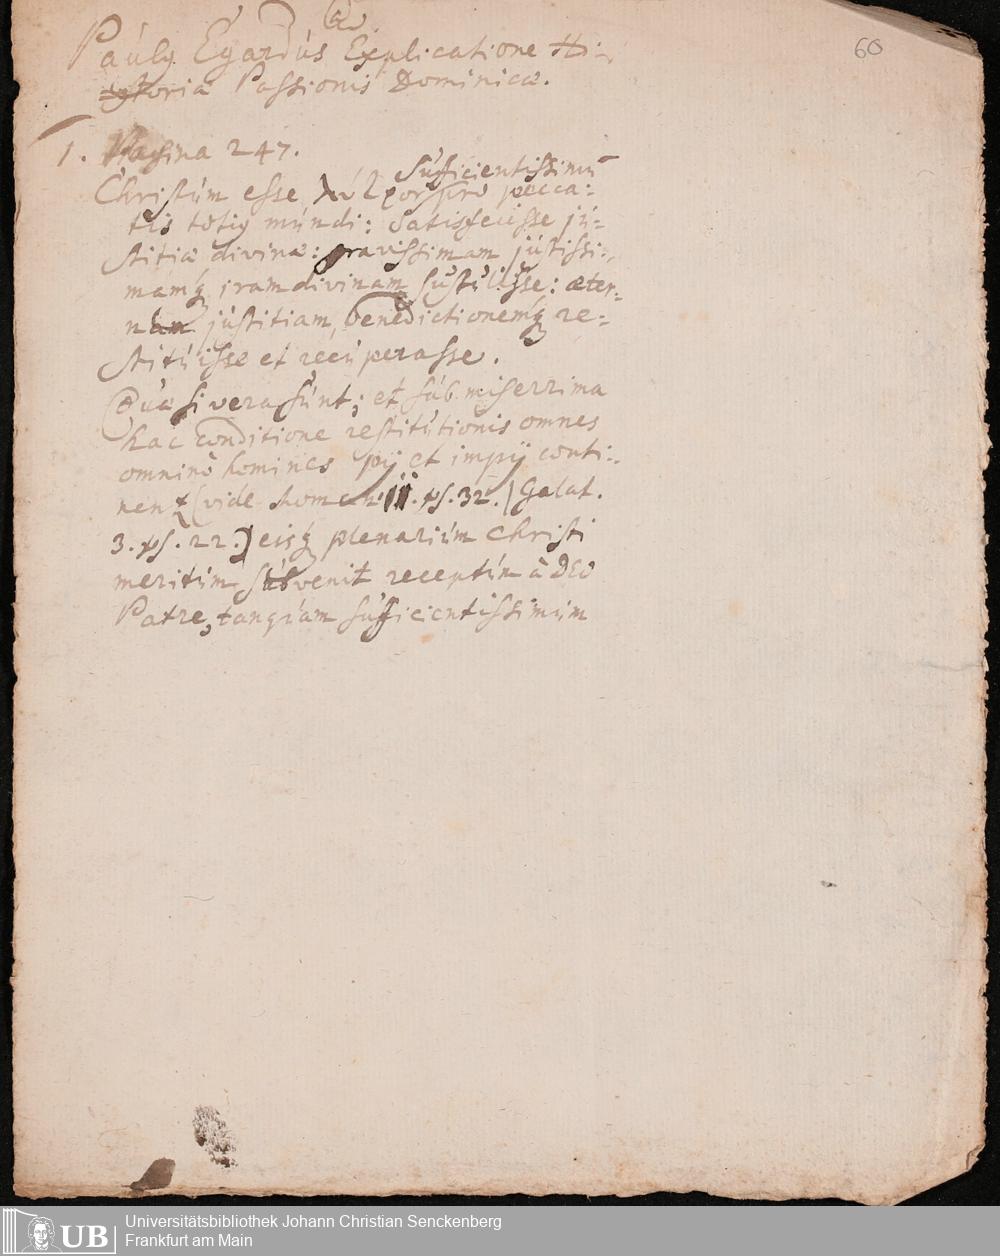 60
Paulꝯ Egardus Explicatione Hi-
storiæ Passionis Dominicæ.
1. Pagina 247.
Sufficientissimũ
Christum esse pro pecca:
tis totiꝯ mundi: Satisfecisse ju-
stitiæ divinæ: gravissimam justissi:
mamq́ȝ iram divinam sustulisse: æter:
nam justitiam, benedictionemq́ȝ re:
stituisse et recuperasse.
Quæ si vera sunt; et sub miserrima
hac conditione restitutionis omnes
omninò homines pij et impij conti:
nent (vide Rom. 11. ꝟs. 32.) Galat.
3. ꝟs. 22.) eisq́ȝ plenarium Christi
meritum subvenit receptum à DEO
Patre, tanquam sufficientissimum
UB
Universitätsbibliothek Johann Christian Senckenberg
Frankfurt am Main